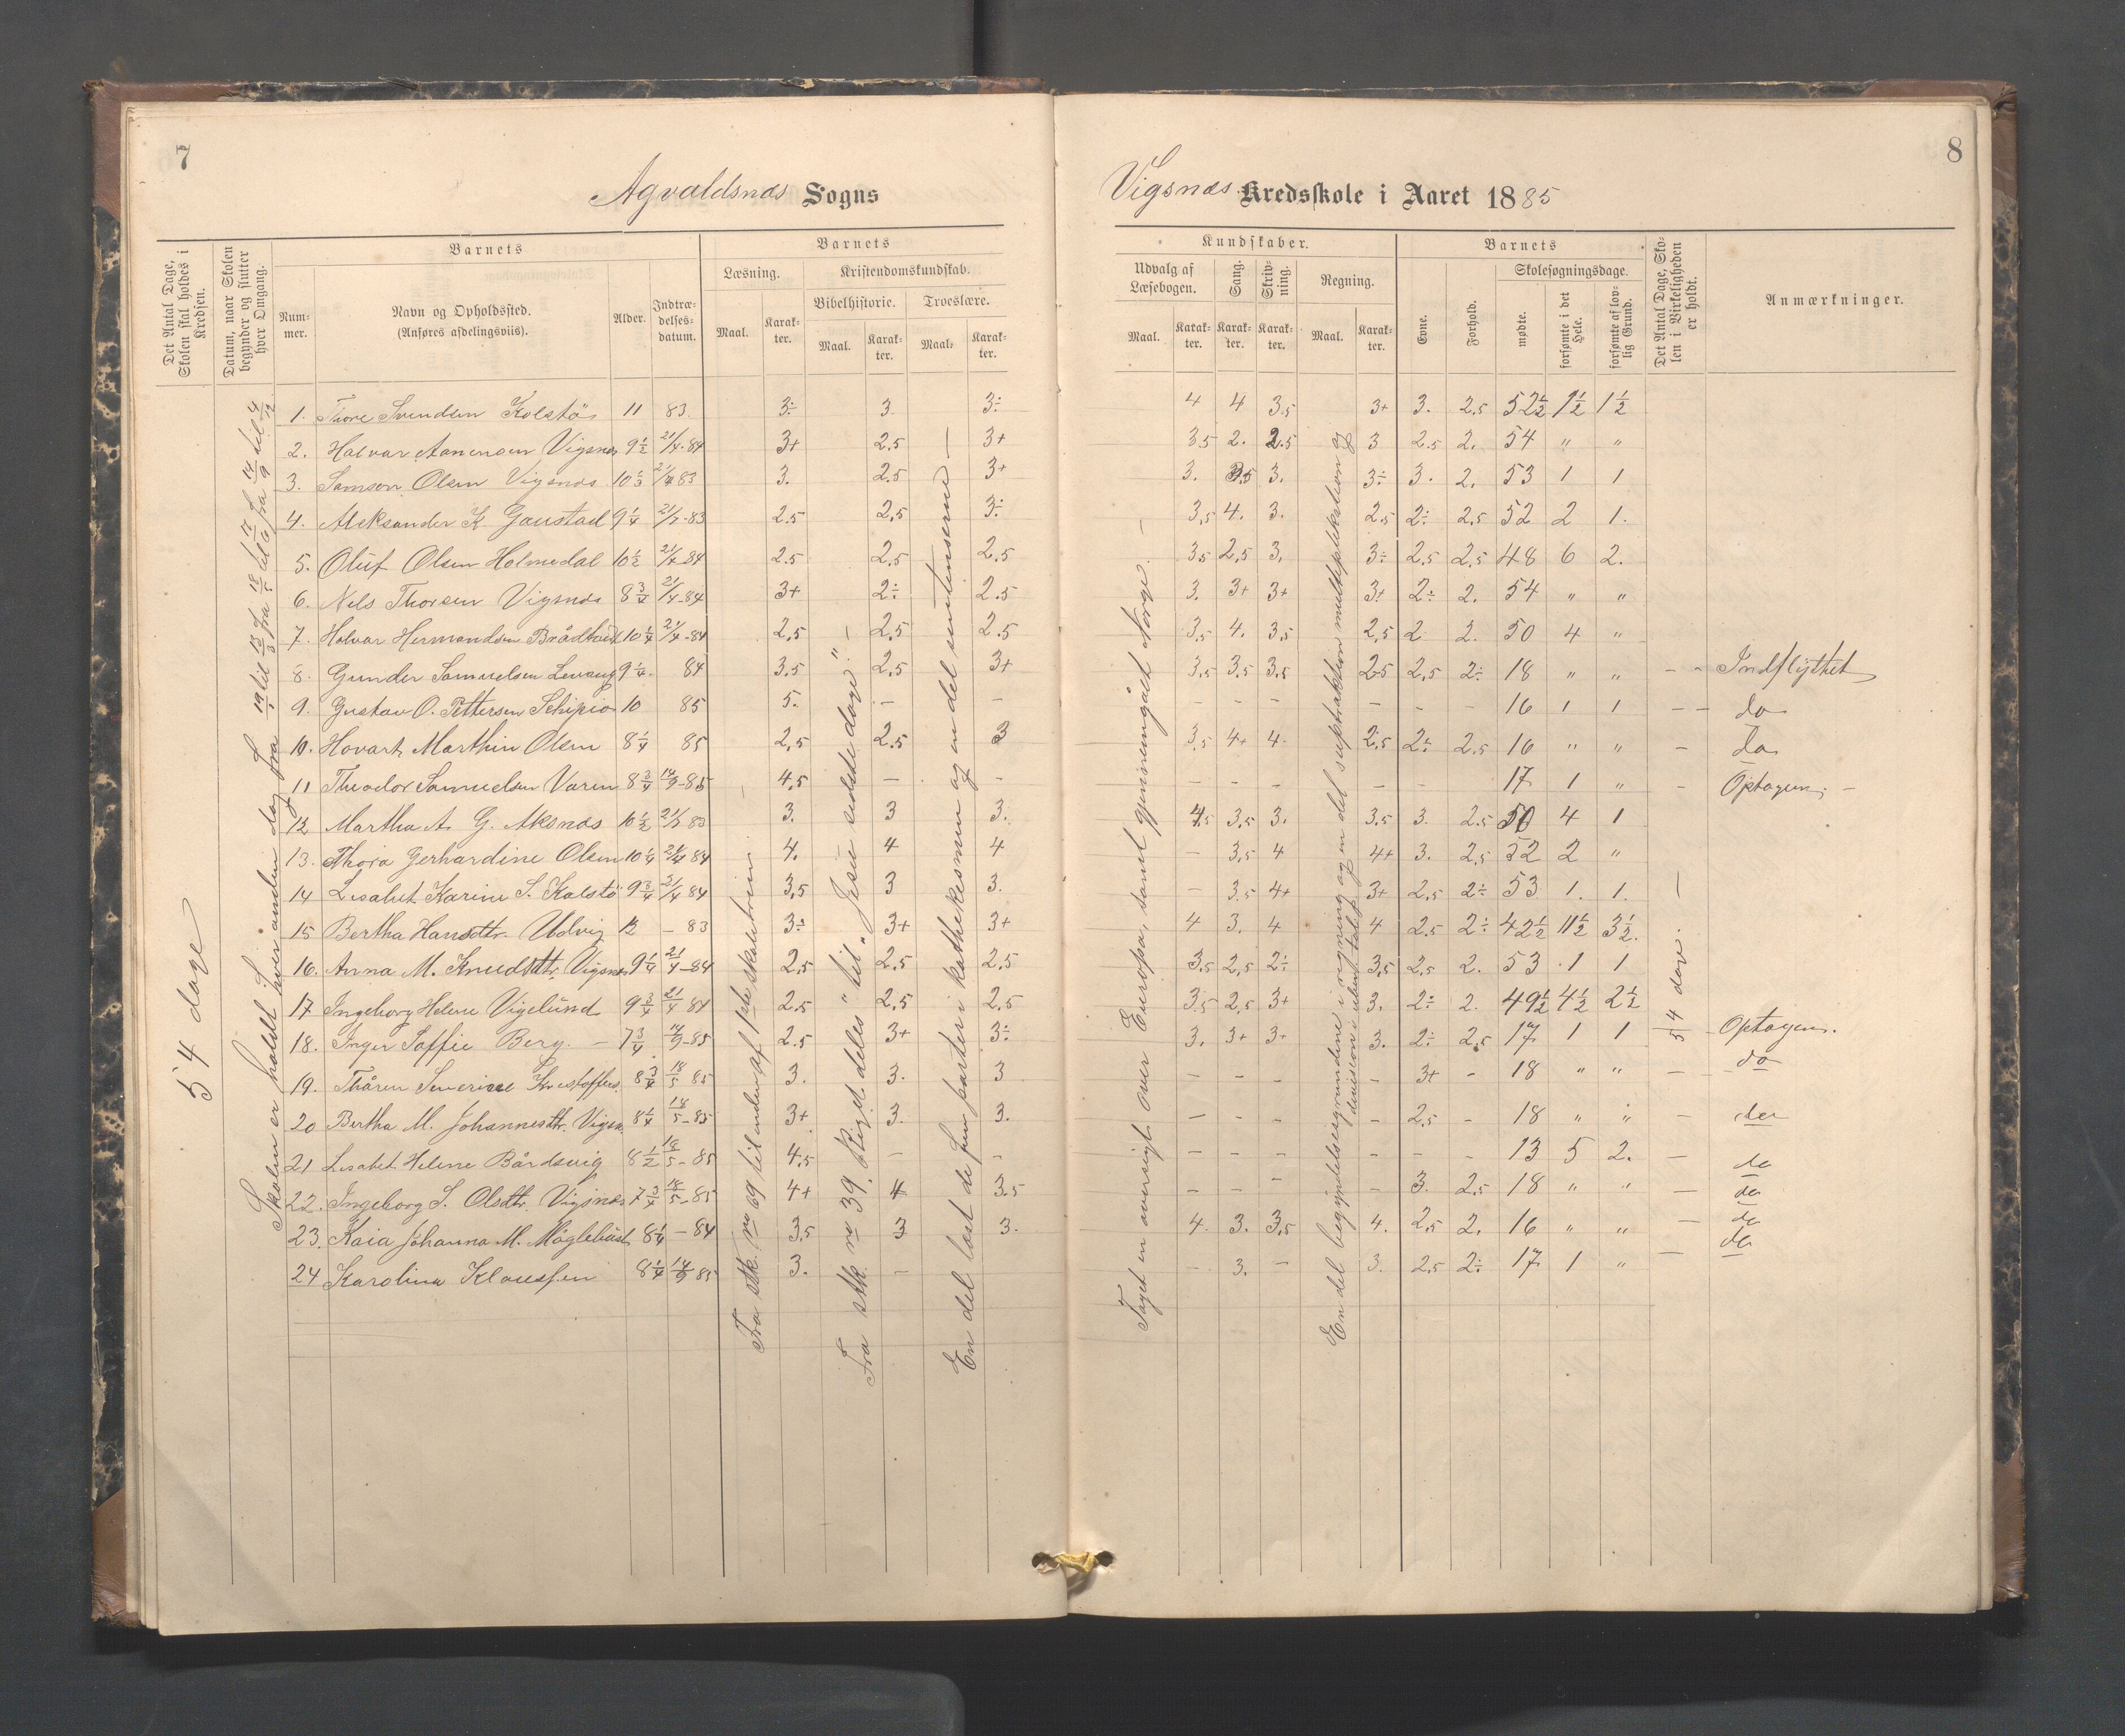 7
Agvaldsnæs Sogns
Det Antal Dage, Skolen skal holdes i Kredsen.
Datum, naar Skolen begynder og slutter hver Omgang.
Barnets
Num-mer.
Navn og Opholdssted.
(Anføres afdelingsviis).
Alder.
Indtræ-delses-datum.
Barnets
Læsning.
Kristendomskundskab.
Bibelhistorie.
Troeslære.
Maal.
Karak-ter.
Maal.
Karak-ter.
Maal.
Karak-ter.
54 dage
Skolen er holdt hver anden dag fra 19/1 til 13/3 fra 18/5 til 17/6 fra 14/9 til 4/12
1. Thore Svendsen Kolstö 11 83. 3÷ 3. 3÷
2. Halvar Aanensen Vigsnæs 9½ 21/4-84 3+ 2.5 3+
3. Samson Olsen Vigsnæs 10½ 83 3. 2.5 3+
4. Aleksander K. Gaustad 9¼ 21/7-83 2.5 2,5 3÷
5. Oluf Olsen Holmedal 10½ 21/4-84 2.5 2,5 2.5
6. Nels Thorsen Vigsnæs 8¾ 21/4-84 3+ 2÷ 2.5
7. Halvar Hermandsen 10¼ 21/4-84 2,5 2,5 2.5
8. Gunder Samuelsen 9¼ 84 3.5 2,5 3+
9. Gustav O. Pettersen Schipio 10 85 5. — —
10. Hovart Marthin Olsen 8¼ 85 2,5 2.5 3
11 Theodor Samuelsen 8¾ 14/9-85 4,5 — -
12 Martha A. G. Aksnæs 10½ 21/7 83 3. 3 3.
13. Thora Gerhardine Olsen 10¼ 21/4 84 4. 4 4
14 Lisabet Karine S. Kalstö 9¾ 21/4 84 3,5 3 3.
15 Bertha Hansdtr. Udvig 12 — 83 3÷ 3+ 3+
16. Anna M. Knudsdtr. Vigsnæs 9¼ 21/4-84 2,5 2,5 2,5
17 Ingeborg Helene Vigelund 9¾ 21/4 84 2.5 2,5 2,5
18. Inger Soffie Berg. — 7¾ 14/9-85 2.5 3+ 3÷
19. Thåren Severine 8¾ 18/5 85 3. 3. 3
20 Bertha M. Johannesdtr. Vigsn. 8¼ 18/5-85 3+ 3. 3.
21 Lisabet Helene Bårdsvig 8½ 18/5-85 4,5 — -
22. Ingeborg S. Olsdtr. Vigsnæs 7¾ 18/5-85 4+ 4 3.5
23. Kaia Johanna M. 8¼ — 84 3,5 3 3.
24 Karolina Klaussen 8¼ 14/9 85 3. —
Fra stk. no 69 til enden af 1ste skoletrin
Fra stk no 39. deles" til "Jesu sidste dage". —
En del læst de fem parter i kathekesmen og en del sentenserne —
8
Vigsnæs Kredsskole i Aaret 1885
Kundskaber.
Udvalg af Læsebogen.
Sang.
Skriv-ning.
Regning.
Maal.
Karak-ter.
Karak-ter.
Karak-ter.
Maal.
Karak-ter.
Barnets
Evne.
Forhold.
Skolesøgningsdage.
mødte.
forsømte i det Hele.
forsømte af lov-lig Grund.
Det Antal Dage, Sko-len i Virkeligheden er holdt.
Anmærkninger.
Taget en oversigt over Europa, samt gjennemgået Norge. —
En del begyndelsesgrundene i regning og en del suptraktion multipplikation og
54 dage. —
4 4 3.5 3+ 3. 2.5 52½ 1½ 1½
3.5 2. 2.5 3 2.5 2. 54 " "
3. 3.5 3. 3÷ 3. 2. 53 1 1
3,5 4. 3. 2.5 2÷ 2,5 52 2 1.
3.5 2,5 3. 3÷ 2,5 2,5 48 6 2.
3. 3+ 3+ 3+ 2÷ 2. 54 " "
3,5 4. 3,5 2,5 2 2. 50 4 "
3,5 3,5 3,5 2.5 2,5 2÷ 18 " " - - Indflÿttet
- - - - - - 16 1 1 - - do
3,5 4+ 4. 2,5 2÷ 2.5 16 " " - do
- - - - - 17 1 " - Optagen. -
4.5 3,5 3. 3.5 3. 2.5 50 4 1
- 3,5 4 4+ 3. 2,5 52 2 "
- 3.5 4+ 3+ 2,5 2÷ 53 1. 1.
4 3. 4 4 2.5 2÷ 42½ 11½ 3½.
3,5 2,5 2÷ 3,5 2,5 2. 53 1 1
3.5 2,5 3+ 3. 2÷ 2. 49½ 4½ 2½
3. 3+ 3+ 3. 2÷ 2,5 17 1 1 Optagen.
- - - - 3+ - 18 " " - do
- - - - 2.5 - 18 " " - do
- - - - - - 13 5 2. - do
- - - - 3. 2.5 18 " " - do
4. 3. 3,5 4. 2.5 2. 16 " " - do
- 3. - 3. 2.5 2÷ 17 1 " - do